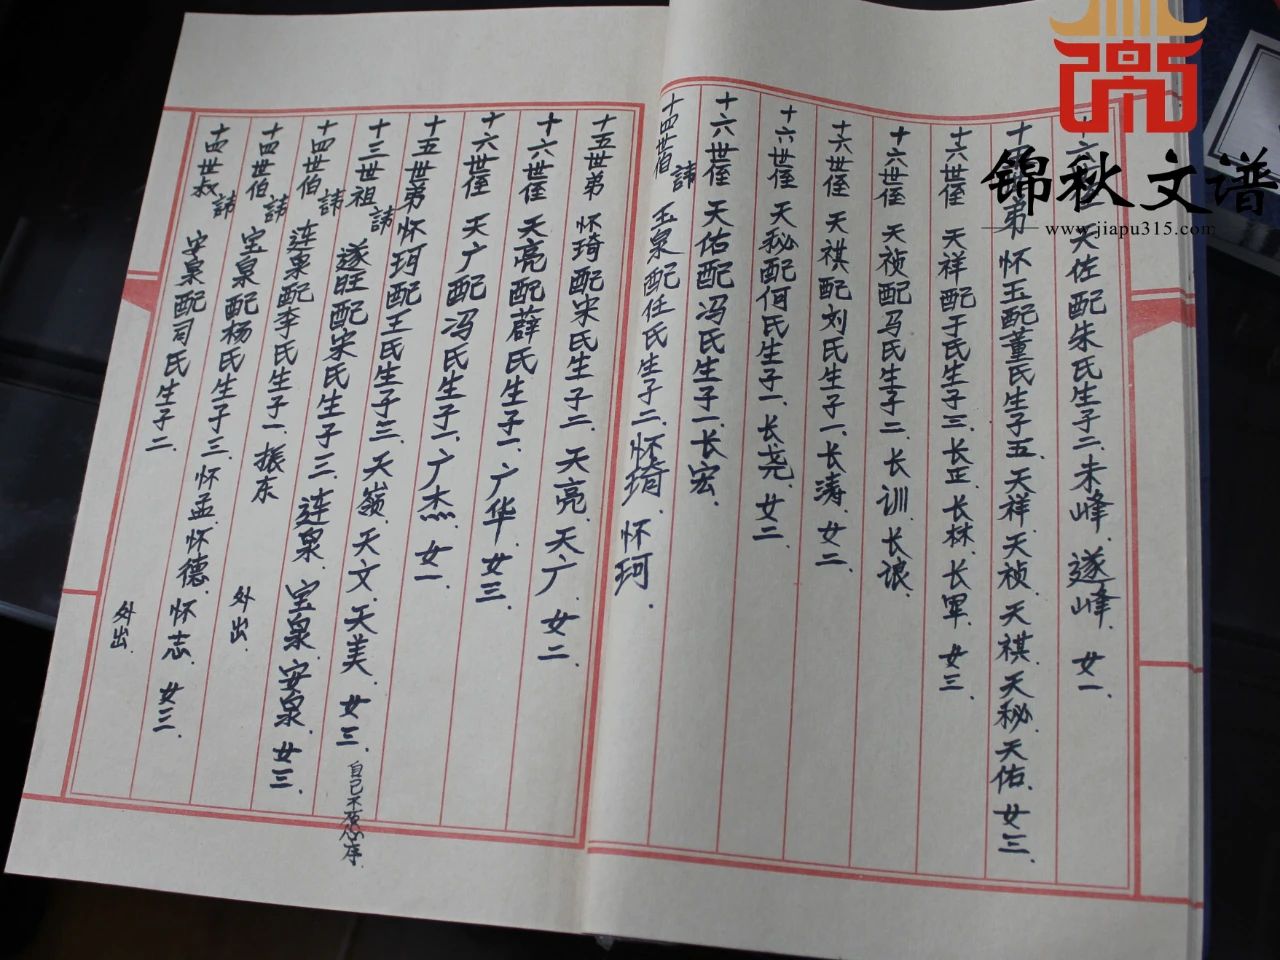 锦秋文谱
www.jiapu315.com
天佐配朱氏生子二.未峰.遂峰.女一.
弟怀玉配董氏生子五.天祥.天祯.天祺.天秘.天佑.女三.
十六世侄 天祥配于氏生子三.长正.长林.长军.女三.
十六世侄 天祯配马氏生子二.长训.长浪.
十六世侄 天祺配刘氏生子一.长涛.女二.
十六世侄 天秘配何氏生子一.长尧.女二.
十六世侄 天佑配冯氏生子一.长宏.
十四世伯 諱 玉泉配任氏生子二.怀琦.怀珂.
十五世弟 怀琦配宋氏生子二.天亮.天广.女二.
十六世侄 天亮配薛氏生子一.广华.女三.
十六世侄 天广配冯氏生子一.广杰.女一.
十五世弟 怀珂配王氏生子三.天巅.天文.天美.女三.
十三世祖 諱 遂旺配宋氏生子三.连泉.宝泉.安泉.女三.
十四世伯 諱 连泉配李氏生子一.振东 外出.
十四世伯 諱 宝泉配杨氏生子三.怀孟.怀德.怀志.女三.
十四世叔 諱 安泉配司氏生子二 外出.